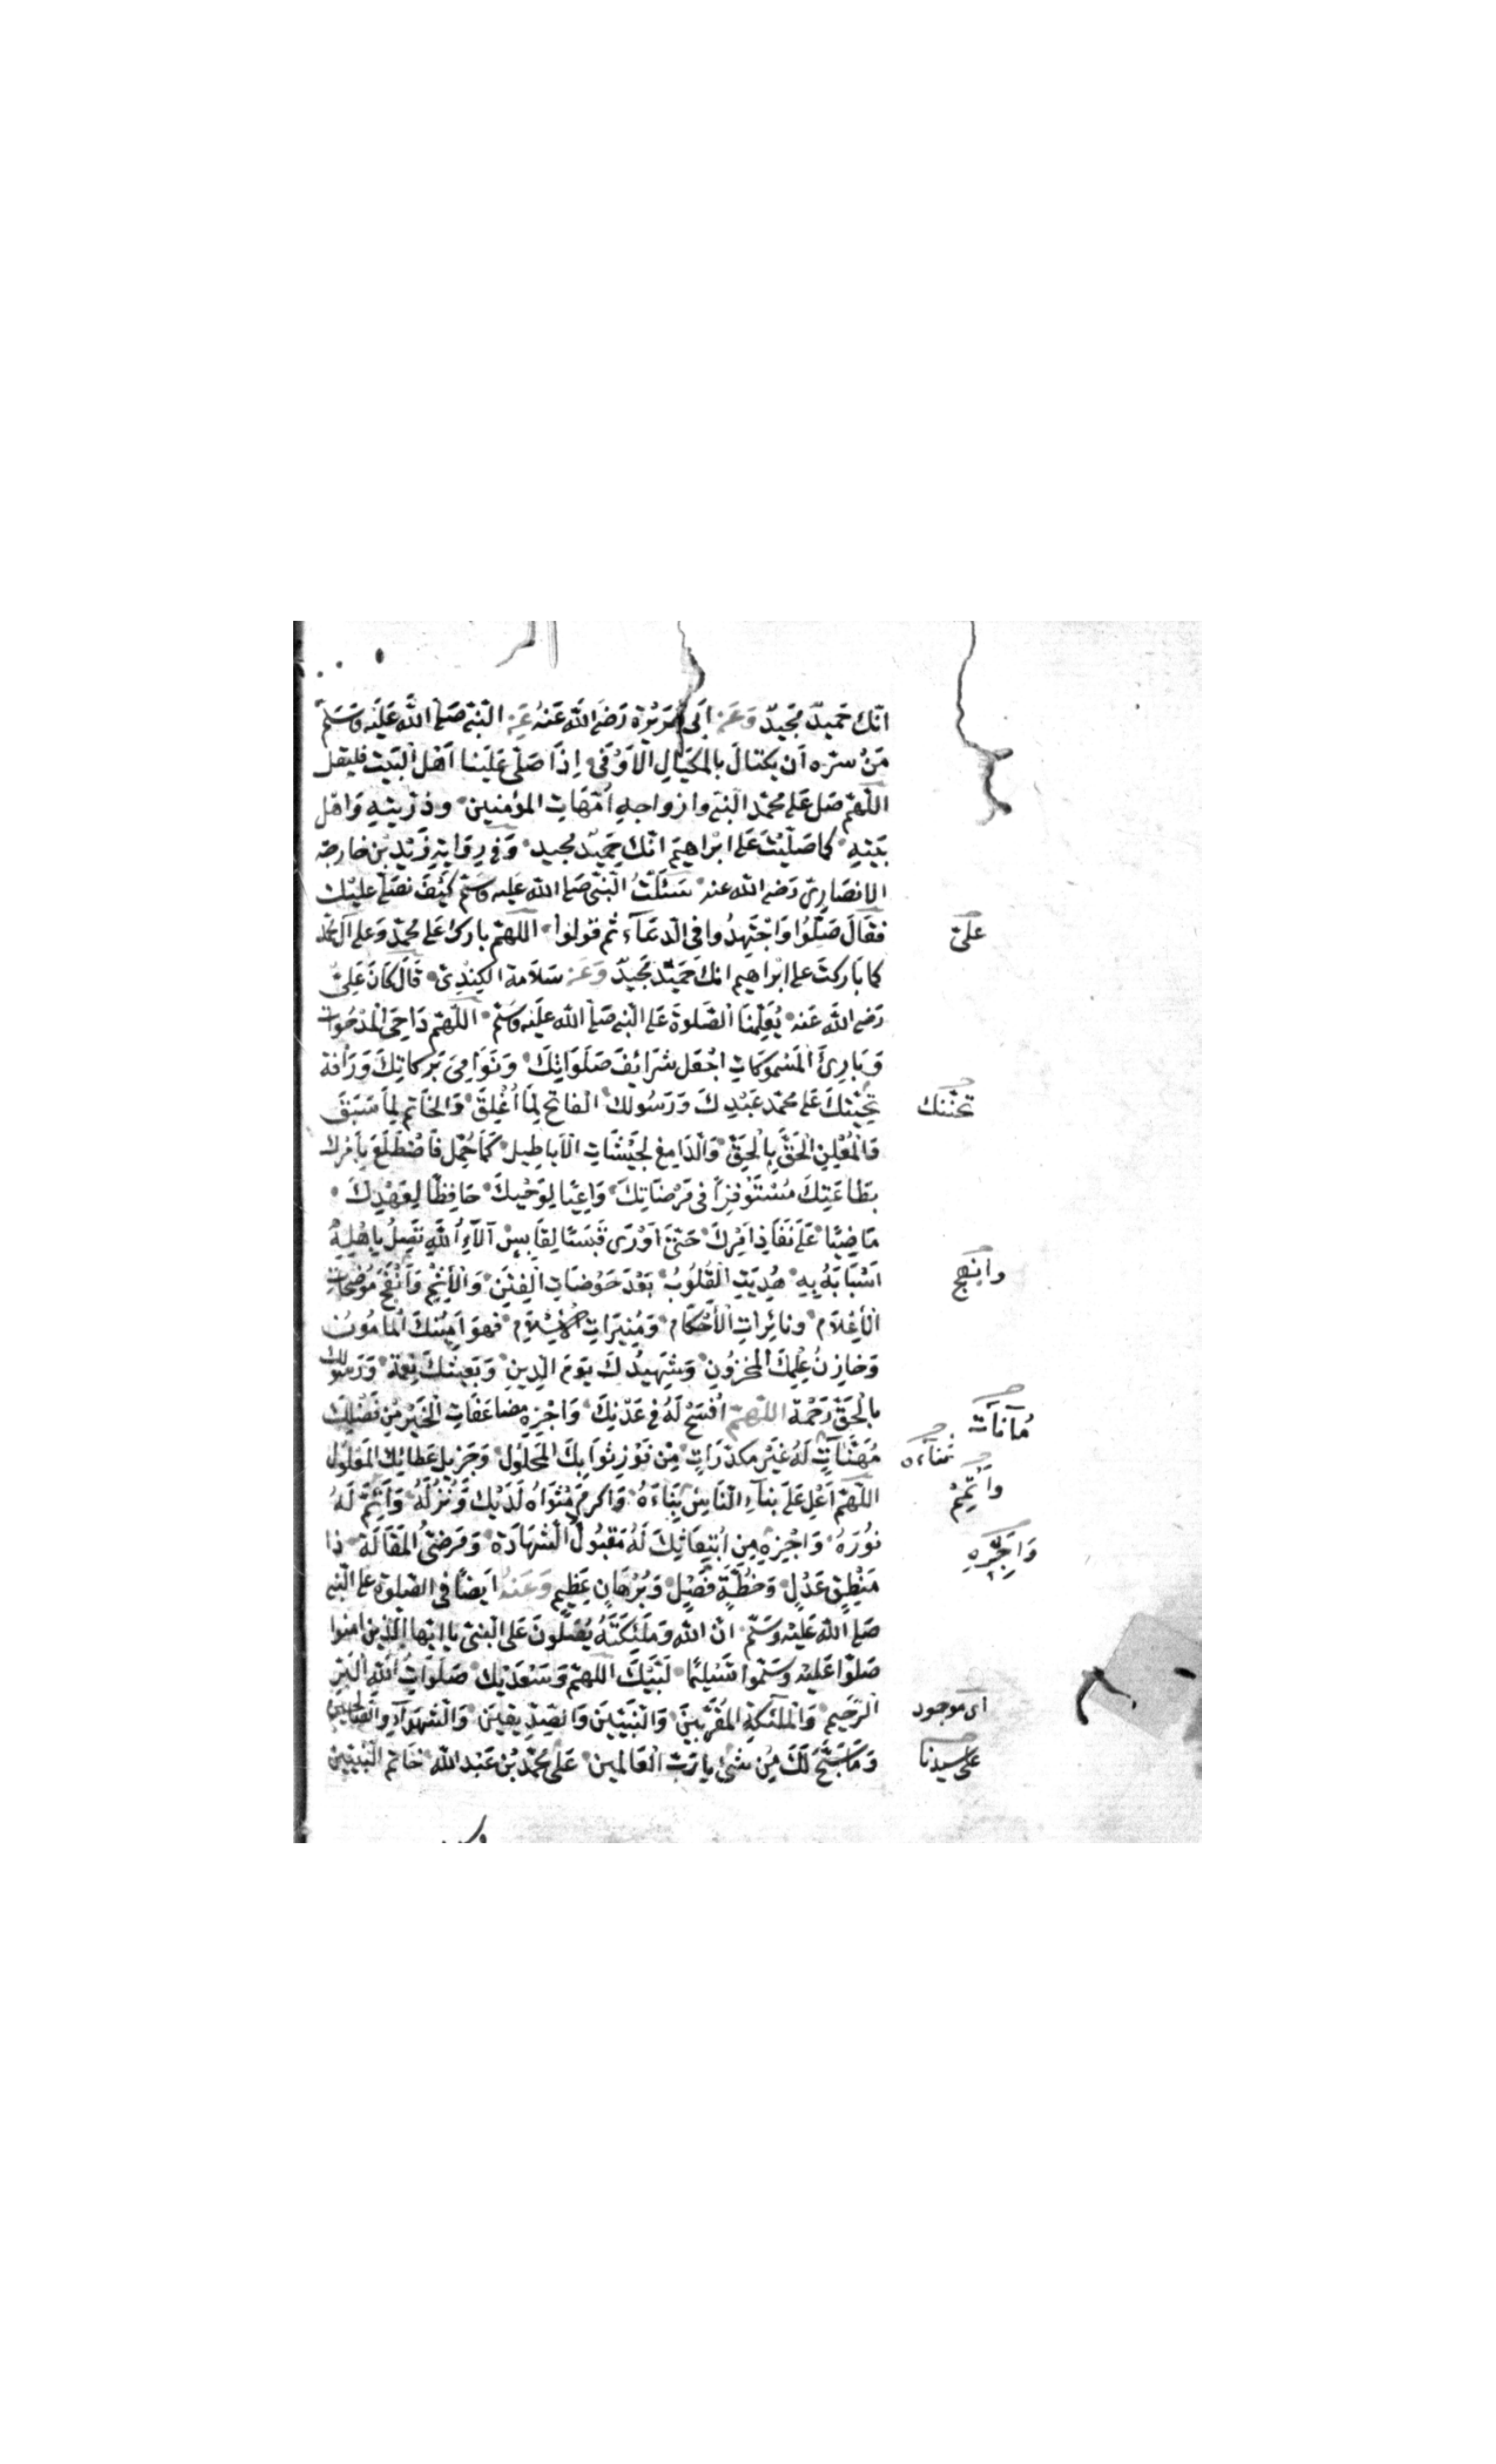 انّك حَميدٌ مجَيدٌ وَعَن اَبى هُرَيْرَة رَضىَ اللهُ عَنهُ عَنِ النّبىّ صَلّى اللهُ عَليَه وَسَلّم
مَنْ سرّه اَن يكتالَ بالمكيَالِ الاَوْفى اِذَا صَلّى عَلَينا اَهْلَ البَيت فليقل
اللّهمّ صَل عَلى محمّد النبّى وازواجهِ اُمّهَاتِ المؤمنين وذرّيتهِ وَاهْل
بَيتهِ كما صَلّيتَ عَلى ابْراهيمَ انّك حَميدٌ مجيد وَفى رِوَايةِ زَيْدِ بْن خارجة
الانصَارِىّ رَضى الله عنه سَئلَتُ النّبى صَلى الله عليه وسَلم كَيْفَ نصَلّى عليْك
فقَالَ صَلّوُا وَاجْتَهِدُوا فى الدعَآء ثم قولوا اللّهمّ بارك عَلى محمّد وَعلى آل محمّد
كما بَاركتَ على ابراهيم انك حَميْدٌ مجَيدٌ وَعَن سَلاَمة الكِنْدِىّ قالَ كانَ عَلِىّ
رَضى الله عَنه يُعَلّمنَا الصَّلوةَ عَلى النّبى صَلى الله علَيه وَسَلّم اللّهمّ دَاحِىَ المدْحُوات
وَبَارِئَ المَسْموُكَاتِ اجْعَل شَرَائفَ صَلَوَاتِكَ وَنَوَامِىَ بَرَكاتِكَ وَرَأفة
تَحِيّتكَ عَلى محمّد عَبْدِكَ وَرَسُولك الفاتح لِمَا اُغْلِقَ وَالخاتمِ لِمَا سَبَقَ
وَالمُعْلنِ الحَقَّ بِالحَقّ وَالدّامِغ لجَيْشَاتِ الاَباطِيل كَمَا حُمّل فَاضْطَلَعَ بِاَمْرك
بطَاعَتِكَ مُسْتَوْفِزاً فى مَرْضَاتِكَ وَاعِيًا لِوَحْيكَ حَافِظًا لِعَهْدِكَ
مَاضِيًا عَلى نَفَاذِ اَمْرِكَ حَتىّ اَوْرَى قَبسًا لِقَابِسٍ آلآءُ اللهِ تَصِلُ بِاهْلِهِ
اَسْبَابَهُ بِهِ هُدِيَتِ القُلُوبُ بَعْدَ خَوْضَاتِ الفِتَنِ وَالاِثمِ وَاَنْهَجَ مُوضِحَات
الاَعْلاَم ونائِراتِ الاَحْكَام وَمُنِيرَاتِ الاِسْلاَمِ فهوَ اَمِينُكَ المَامُونُ
وَخازِنُ عِلمِكَ المخزُونِ وَشَهِيدُكَ يَوْمَ الدّينِ وَبَعِيثكَ نِعْمَة وَرَسولك
بالحَقّ رَحْمَة اللّهمّ افْسَحْ لَهُ فى عَدْنِكَ وَاجْزِهِ مضاعَفَاتِ الخَيْرِ مِنْ فَضْلِكَ
مُهَنّآتٍ لَهُ غَيْرَ مكدّرَاتٍ مِن فَوْزِ ثوَابكَ المحلُول وَجَزِيل عَطائكَ المَعْلوُل
اللّهمّ اَعْلِ عَلى بنآءِ النّاسِ بِنَاءَهُ وَاكرِم مَثْوَاهُ لَدَيْكَ وَنُزُلَهُ وَاَتِمّ لَهُ
نُورَهُ وَاجْزِهِ مِن ابْتِعَاثِكَ لَهُ مَقبُولَ الشَهَادَة وَمَرضِىَّ المَقَالَة ذا
مَنْطِقٍ عَدْلٍ وَخُطّةٍ فَصْلٍ وَبُرْهَانٍ عَظِيم وَعَنهُ اَيضًا فى الصّلوة على النّبى
صَلى الله عَليْه وسَلّم انّ الله وَمَلئكَتَهُ يُصَلّونَ عَلى النبىّ يا ايّها الّذين امنوا
صَلّوا عَليْهِ وسَلّموا تَسْلِيمًا لَبّيْكَ اللّهمّ وَسَعْدَيْك صَلَوَاتُ اللهِ البَرّ
الرّحِيم وَالملئكةِ المُقرّبينَ وَالنّبيّينَ وَالصّدِيقينَ وَالشّهَدآءِ وَالصّالحين
وَمَا سَبّحَ لَكَ مِنْ شئ يا رَبّ العَالمين عَلى محمّد بْن عَبْد الله خَاتم النّبيّين
علىّ
تحنّنك
وانهج
مُهَنّآت
ثناءه
وَاَتْمِمْ
وَاجْزِهِ
اى موجود
على سيدنا